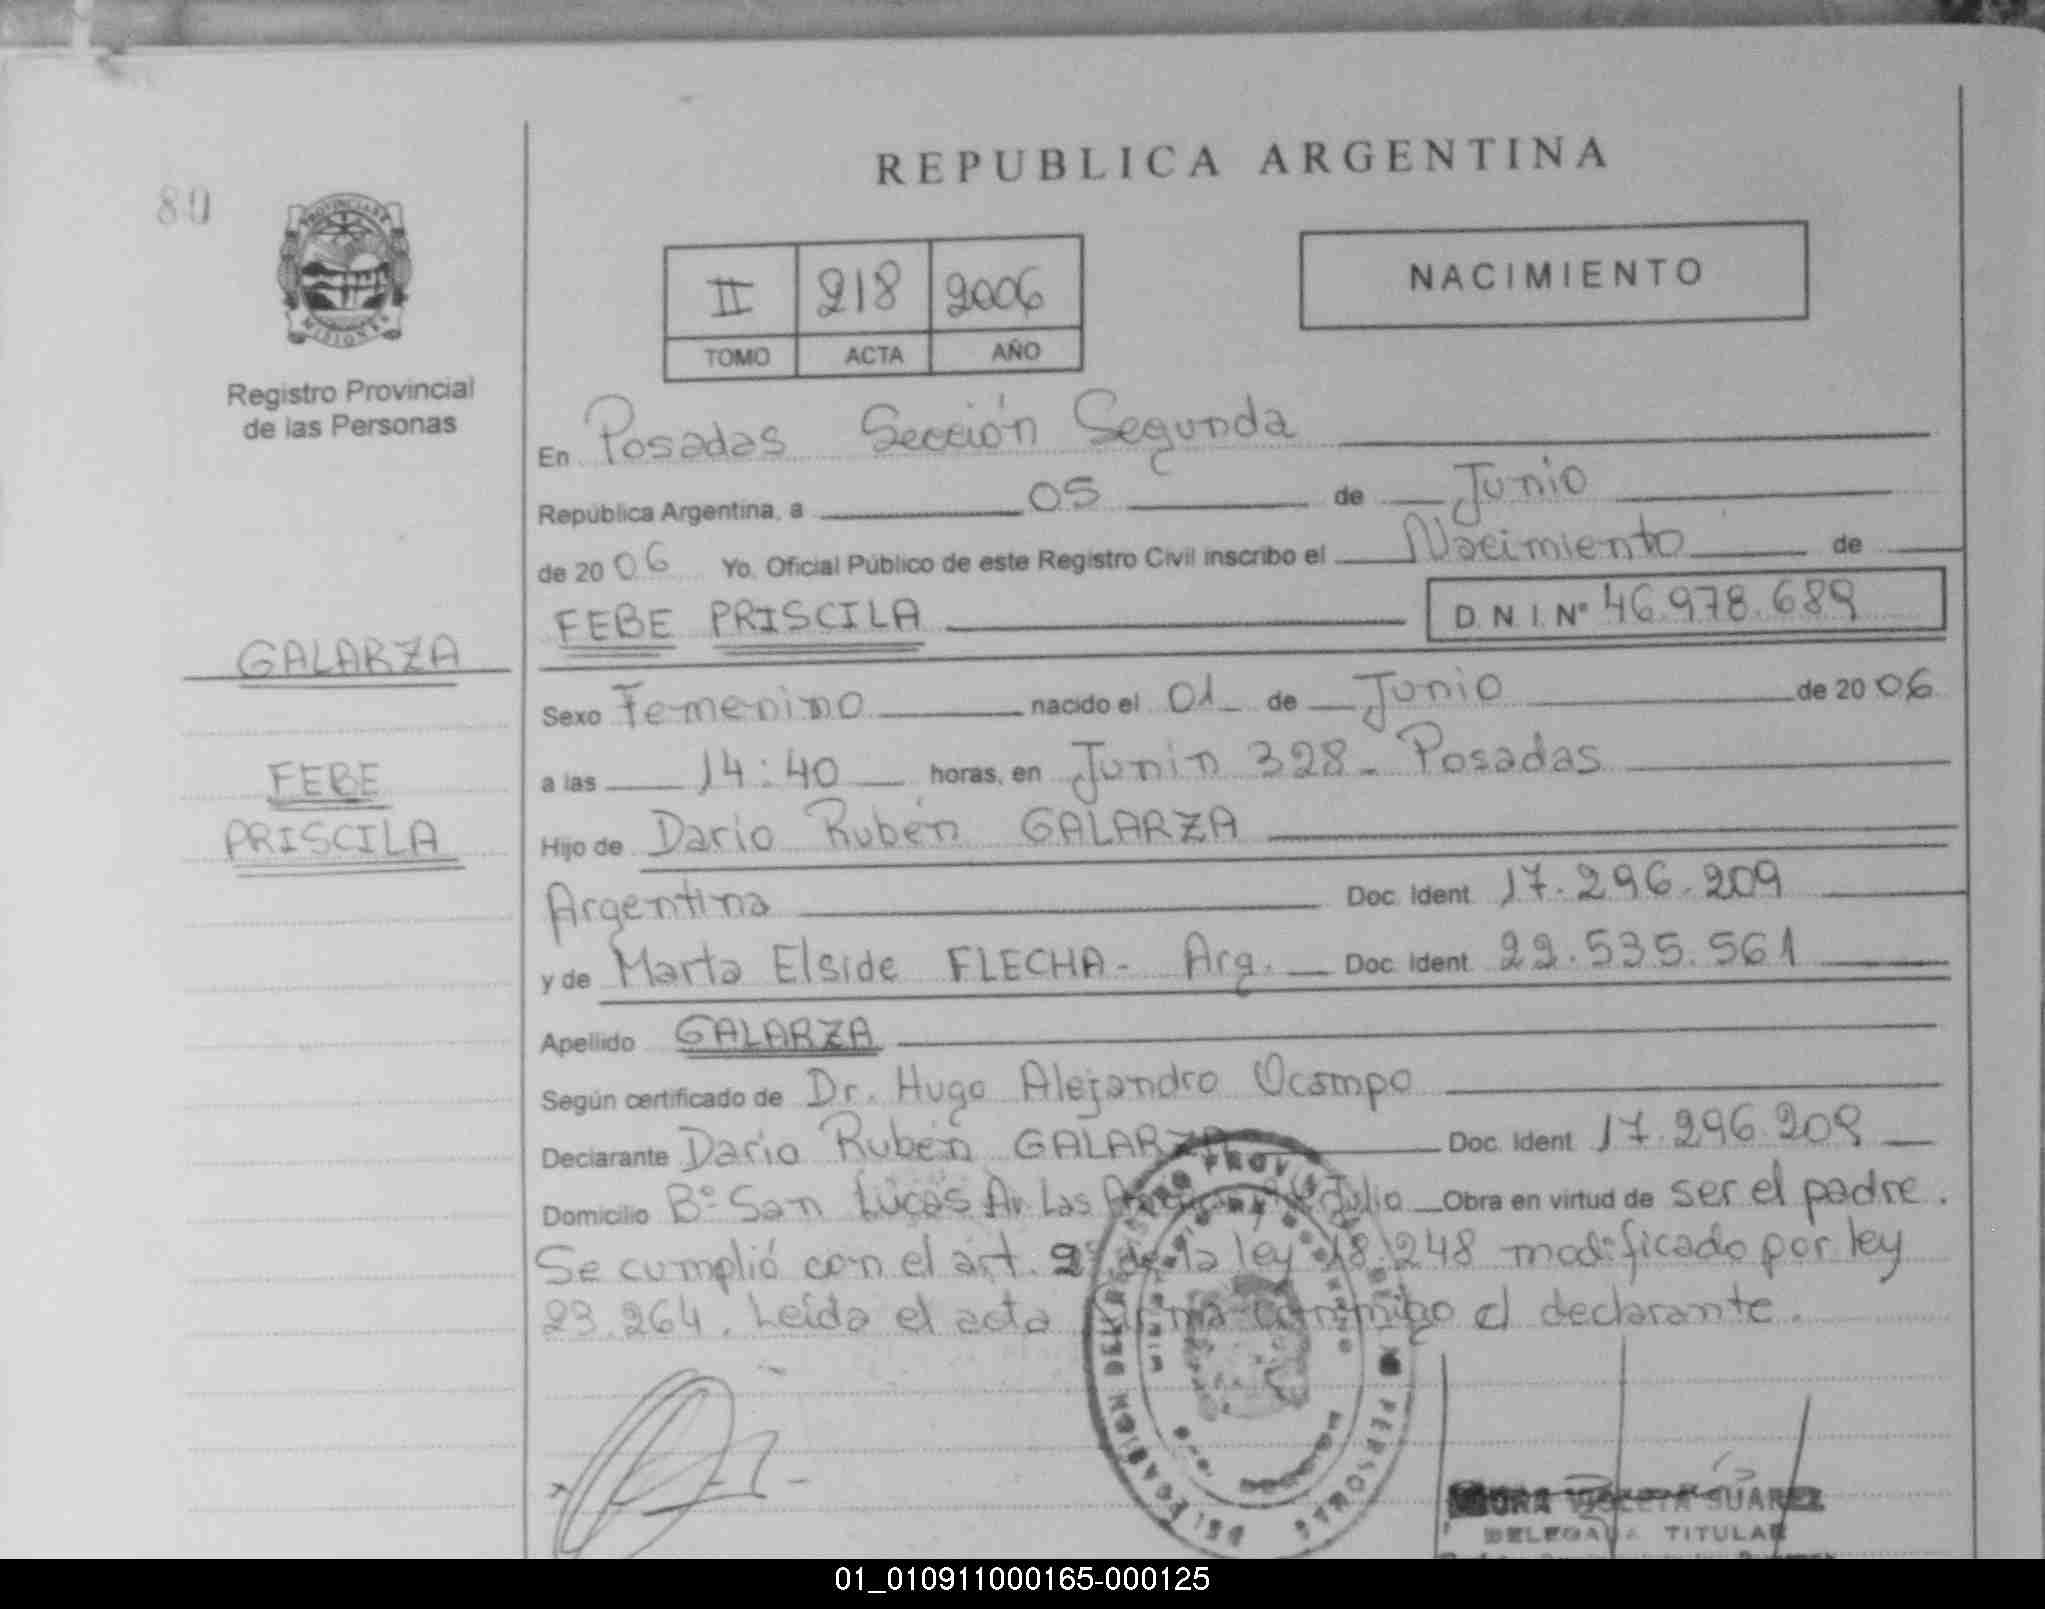 REPUBLICA ARGENTINA
80
PROVINCIA DE
MISIONES
NACIMIENTO
II 218 2006
TOMO ACTA AÑO
Registro Provincial
de las Personas
En Posadas Sección Segunda
República Argentina, a 05 de Junio
de 20 06 Yo, Oficial Público de este Registro Civil inscribo el Nacimiento de
FEBE PRISCILA D.N.I. Nº 46.978.689
GALARZA
Sexo Femenino nacido el 01 de Junio de 20 06
FEBE
a las 14:40 horas, en Junin 328 - Posadas
PRISCILA
Hijo de Dario Rubén GALARZA
Argentina Doc. Ident. 17.296.209
y de Marta Elside FLECHA - Arg. Doc. Ident. 22.535.561
Apellido GALARZA
Según certificado de Dr. Hugo Alejandro Ocampo
Declarante Dario Rubén GALARZA Doc. Ident. 17.296.209
Domicilio Bº San Lucas Av. Las Julio Obra en virtud de ser el padre.
Se cumplió con el art. 2º de la ley 18.248 modificado por ley
23.264. Leída el acta firma conmigo el declarante.
SUAREZ
DELEGADA TITULAR
01_010911000165-000125